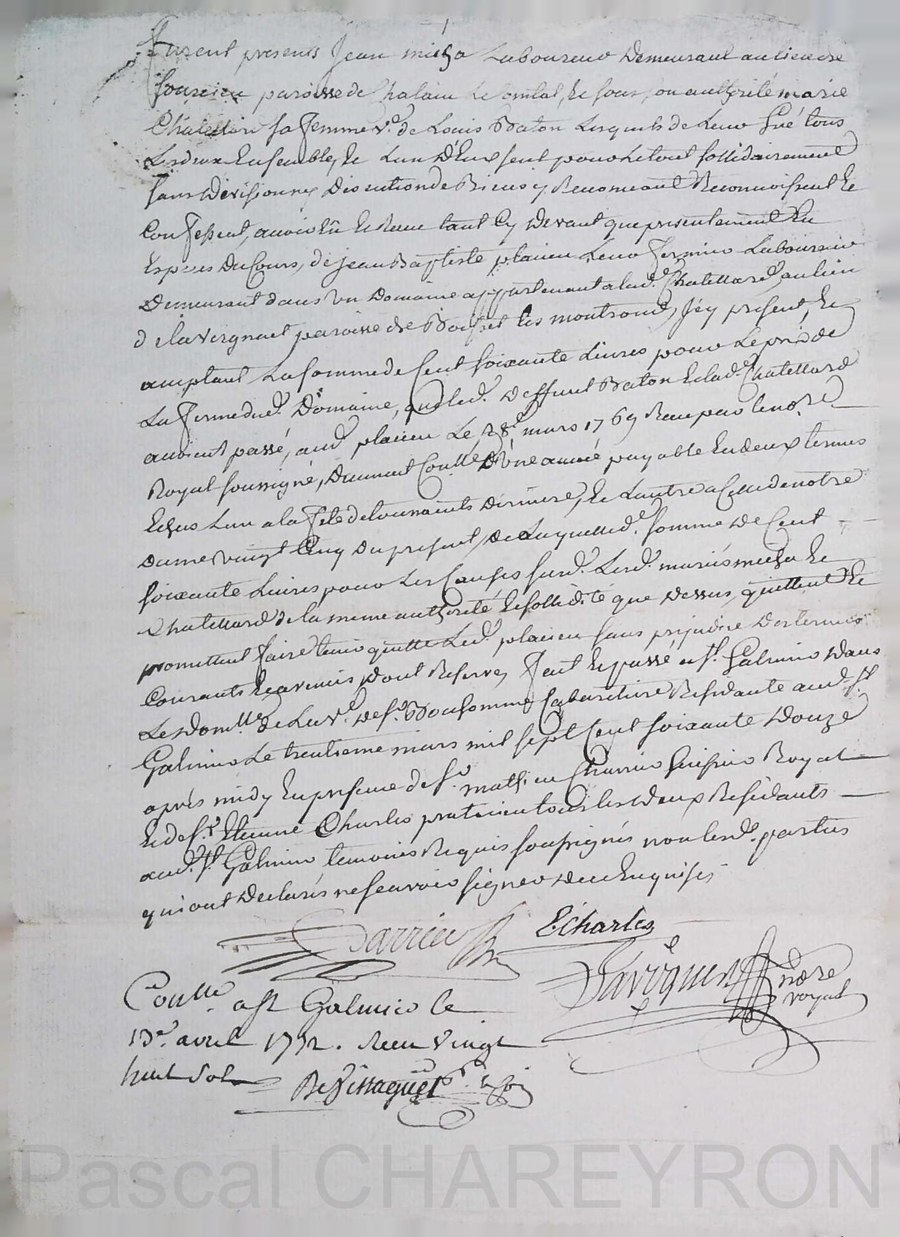 furent presents Jean micha Laboureur Demeurant au lieu de
paroisse de Chalain Le comtal, Et sous, son authorité marie
Chatellard sa femme ve. de Louis Baton Lesquels de Leur gré tous
Lesdeux Ensemble, Et Lun D'Eux seul pour Letout sollidairement
sans Division ny Discution de Biens y Renonceant Reconnoissent Et
Confessent, avoir Eû Et Receu tant Cy Devant que presentement En
Especes Du Cours, de jean Baptiste plaicieu Leur fermier Laboureur
Demeurant dans Un Domaine appartenant a lad. Chatellard, au lieu
de lavergnat paroisse de Boisset Les montrond, Jcy present, Et
acceptant La somme de Cent soixante Livres pour Le prix de
La ferme dud. Domaine, que led. Deffunt Baton Et lad. Chatellard
avoient passé, aud. plaicieu Le 28e. mars 1769 Receu par le nore
Royal soussigné, Duement Coullé D'Une année payable En deux termes
Echus Lun a la fete de toussaints Derniere, Et Lautre a Celle de notre
dame vingt Cinq du present, De Laquelle d. somme de Cent
soixante Livres pour Les Causes susd. Lesd. mariés micha Et
Chatellard de la meme authorité Et sollidité que Dessus, quittent Et
promettent faire tenir quitte Led. plaicieu sans prejudice Des termes
Courants Et avenir Dont Reserve, fait Et passé a st. Galmier Dans
Le Domlle de La ve. de sr. Bonhomme Cabaretiere Residante aud. st
Galmier Le trentieme mars mil sept Cent soixante Douze
aprés midy En presence de sr. mathieu Greffier Royal
Et de sr. Etienne Charles praticien tous les deux Residants
aud. st. Galmier temoins Requis soussignés non lesd. parties
qui ont Declarés ne scavoir signer de ce Enquises
ECharles
nore
royal
Conlle a st Galmier le
13e. avril 1772. Receu vingt
huit Sols